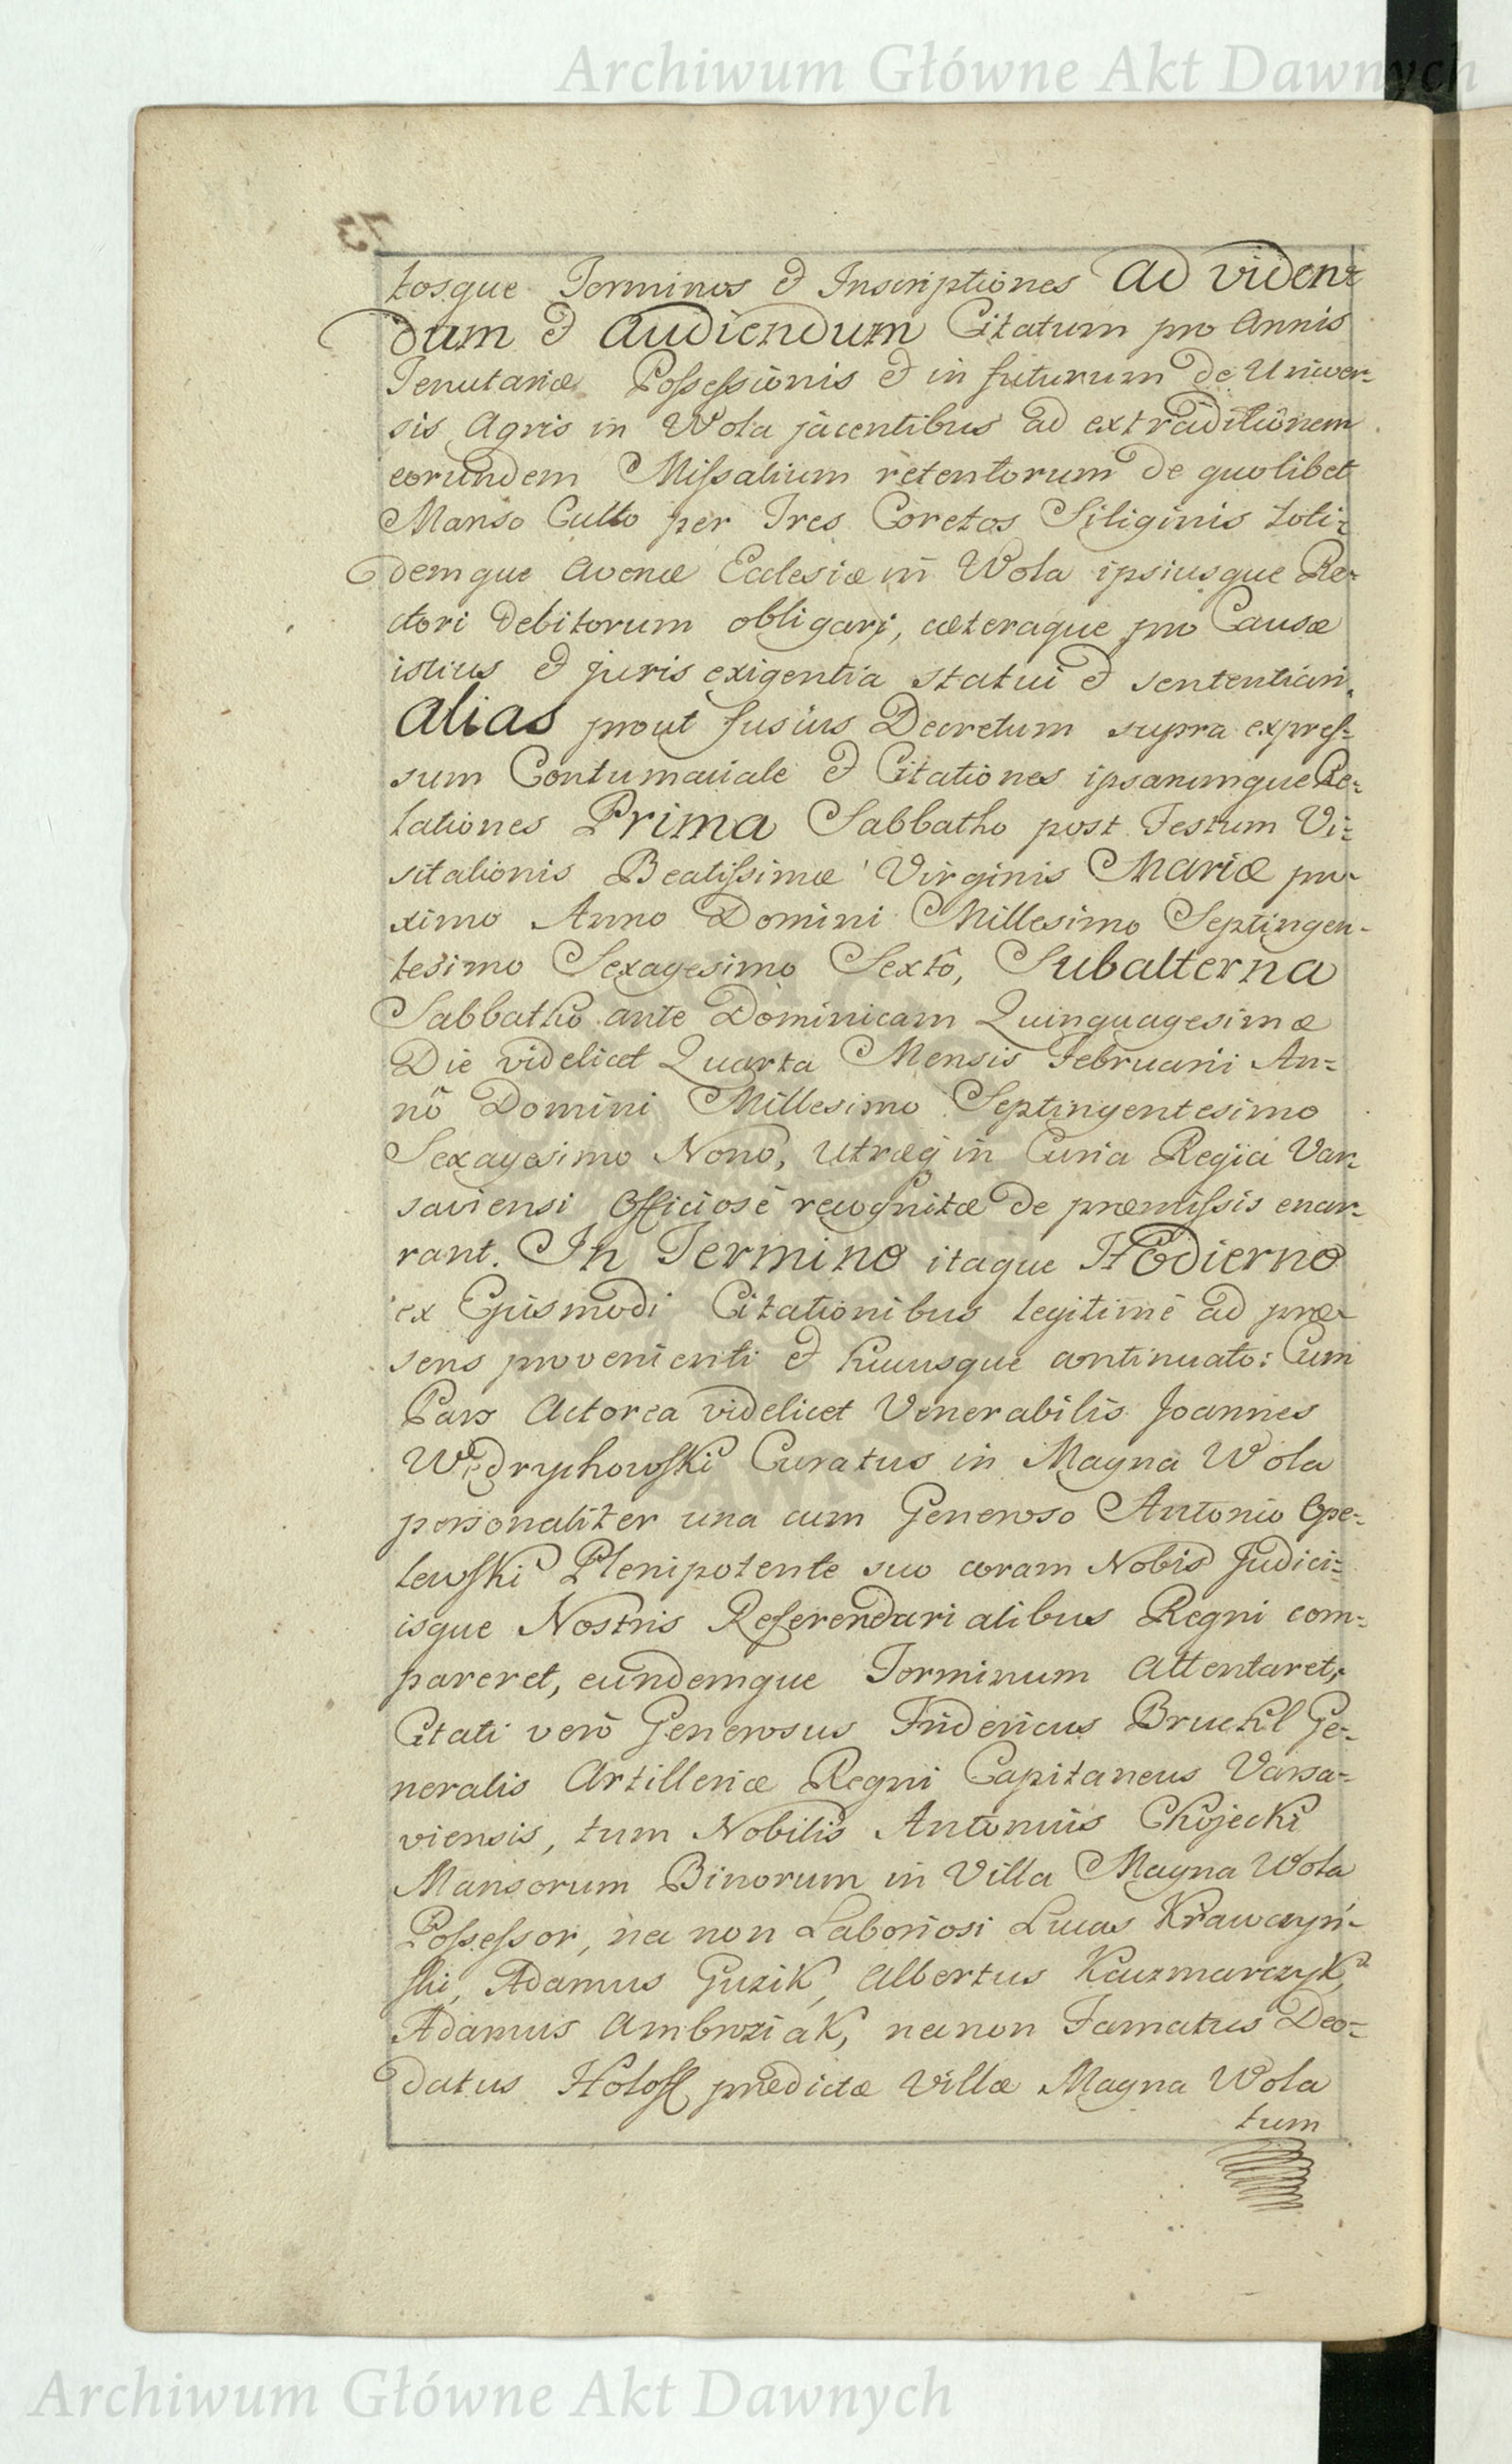 Archiwum Główne Akt Dawnych
73
tosque Terminos et Inscriptiones Ad Viden-
dum et Audiendum Citatum pro Annis
Tenutariæ Possessionis et in futurum de Univer-
sis Agris in Wola jacentibus ad extraditionem
eorundem Missalium retentorum de quolibet
Manso Culto per Tres Coretos Siliginis toti-
demque Avenæ Ecclesiæ in Wola ipsiusque Re-
ctori Debitorum obligari, cæteraque pro Causæ
istius et juris exigentia statui et sententiari.
Alias prout fusius Decretum supra expres-
sum Contumaciale et Citationes ipsarumque Re-
lationes Prima Sabbatho post Festum Vi-
sitationis Beatissimæ Virginis Mariæ pro-
ximo Anno Domini Millesimo Septingen-
tesimo Sexagesimo Sextô, Subalterna
Sabbatho ante Dominicam Quinquagesimæ
Die videlicet Quarta Mensis Februarii An-
nô Domini Millesimo Septingentesimo
Sexagesimo Nono, utræq in Curia Regia Var-
saviensi Officiosè recognitæ de præmissis enar-
rant. In Termino itaque Hodierno
ex Ejusmodi Citationibus legitimè ad præ-
sens provenienti et hucusque continuato: Cum
Pars Actorea videlicet Venerabilis Joannes
Wędrychowski Curatus in Magna Wola
personaliter una cum Generoso Antonio Ope-
lewski Plenipotente suo coram Nobis Judici-
isque Nostris Referendarialibus Regni com-
pareret, eundemque Terminum attentaret,
Citati verò Generosus Fridericus Bruehl Ge-
neralis Artilleriæ Regni Capitaneus Varsa-
viensis, tum Nobilis Antonius Chojecki
Mansorum Binorum in Villa Magna Wola
Possessor, nec non Laboriosi Lucas Krawczyń-
ski, Adamus Guzik, Albertus Kaczmarczyk,
Adamus Ambroziak, necnon Famatus Deo-
datus Holost prædictæ Villæ Magna Wola
tum
Archiwum Główne Akt Dawnych